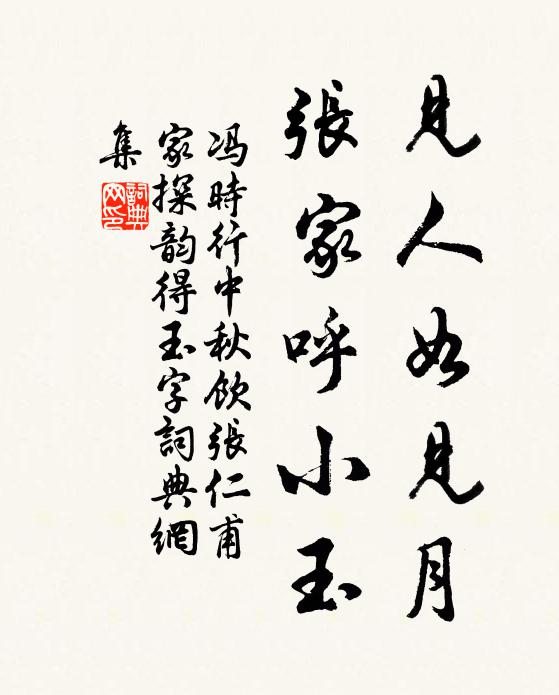 見人如見月
張家呼小玉
冯時行中秋飲張仁甫
家探韵得玉字詞典網
集
詞典
网印